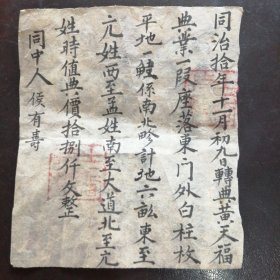 同治拾年十一月初九日轉典黃天福
典業一段座落東門外白柱枚
平地一㽟係南北畛計地六畝東至
亢姓西至孟姓南至大道北至亢
姓時值典價拾捌仟文整
同中人侯有壽